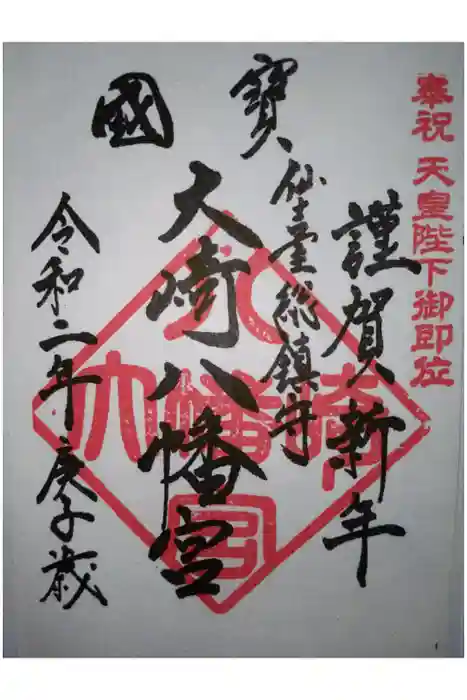 奉祝 天皇陛下御即位
謹賀新年
國寶
仙臺総鎮守
大崎八幡宮
令和二年庚子歳
大崎八幡宮